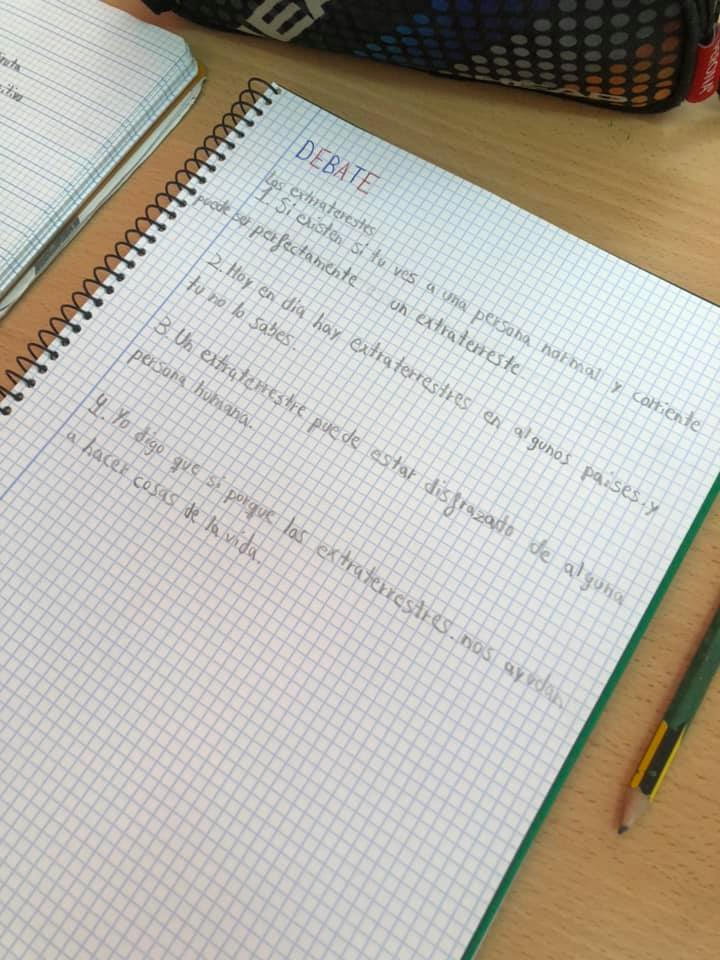 DEBATE
los extraterestes
1. Si existen si tu ves a una persona normal y corriente
puede ser perfectamente un extraterreste
2. Hoy en día hay extraterrestres en algunos países. y
tu no lo sabes.
3. Un extraterrestre puede estar disfrazado de alguna
persona humana.
4. Yo digo que si porque los extraterrestres. nos ayudan
a hacer cosas de la vida.